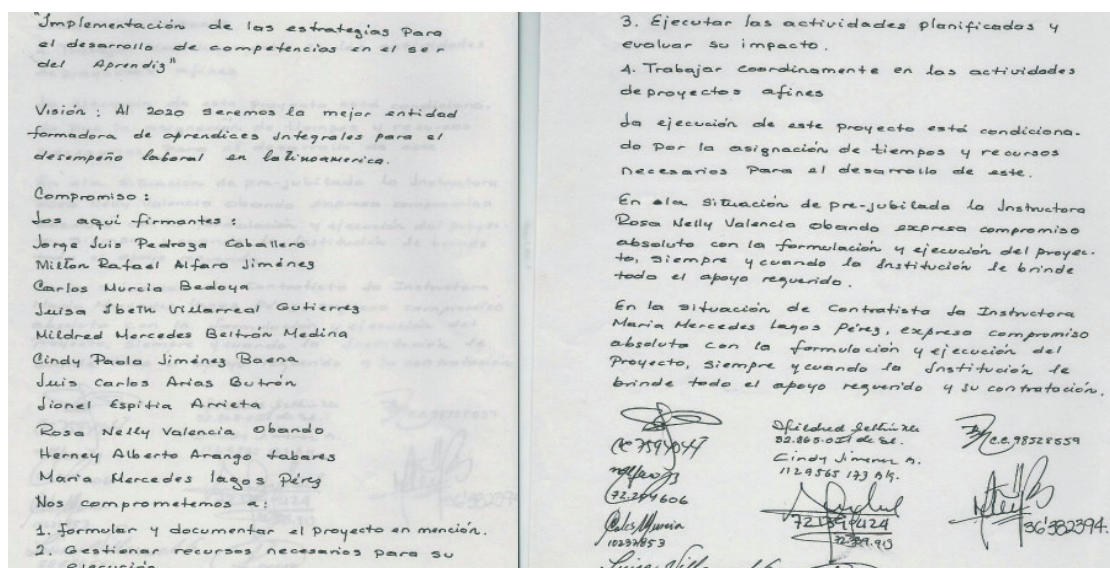 "Implementación de las estrategias Para
el desarrollo de competencias en el ser
del Aprendiz"
Visión: Al 2020 seremos la mejor entidad
formadora de aprendices integrales para el
desempeño laboral en latinoamerica.
Compromiso:
Los aquí firmantes:
Jorge Luis Pedroza Caballero
Milton Rafael Alfaro Jiménez
Carlos Murcia Bedoya
Luisa Ibeth Villarreal Gutierrez
Mildred Mercedes Beltrán Medina
Cindy Paola Jiménez Baena
Luis Carlos Arias Butrón
Lionel Espitia Arrieta
Rosa Nelly Valencia Obando
Herney Alberto Arango tabares
Maria Mercedes lagos Pérez
Nos comprometemos a:
1. formular y documentar el proyecto en mención.
2. Gestionar recursos necesarios para su
ejecución
3. Ejecutar las actividades planificadas y
evaluar su impacto.
4. Trabajar coordinamente en las actividades
de proyectos afines
La ejecución de este proyecto está condiciona-
do por la asignación de tiempos y recursos
necesarios para el desarrollo de este.
En ela situación de pre-jubilada la Instructora
Rosa Nelly Valencia obando expresa compromiso
absoluto con la formulación y ejecución del proyec-
to, siempre y cuando la Institución le brinde
todo el apoyo requerido.
En la situación de Contratista la Instructora
Maria Mercedes lagos Pérez, expresa compromiso
absoluto con la formulación y ejecución del
Proyecto, siempre y cuando la Institución le
brinde todo el apoyo requerido y su contratación.
cc 7594047
Mildred Beltrán
C.C. 98528559
Cindy Jimenez B.
1129565 173
72.294606
Carlos Murcia
10237853
36'382394.